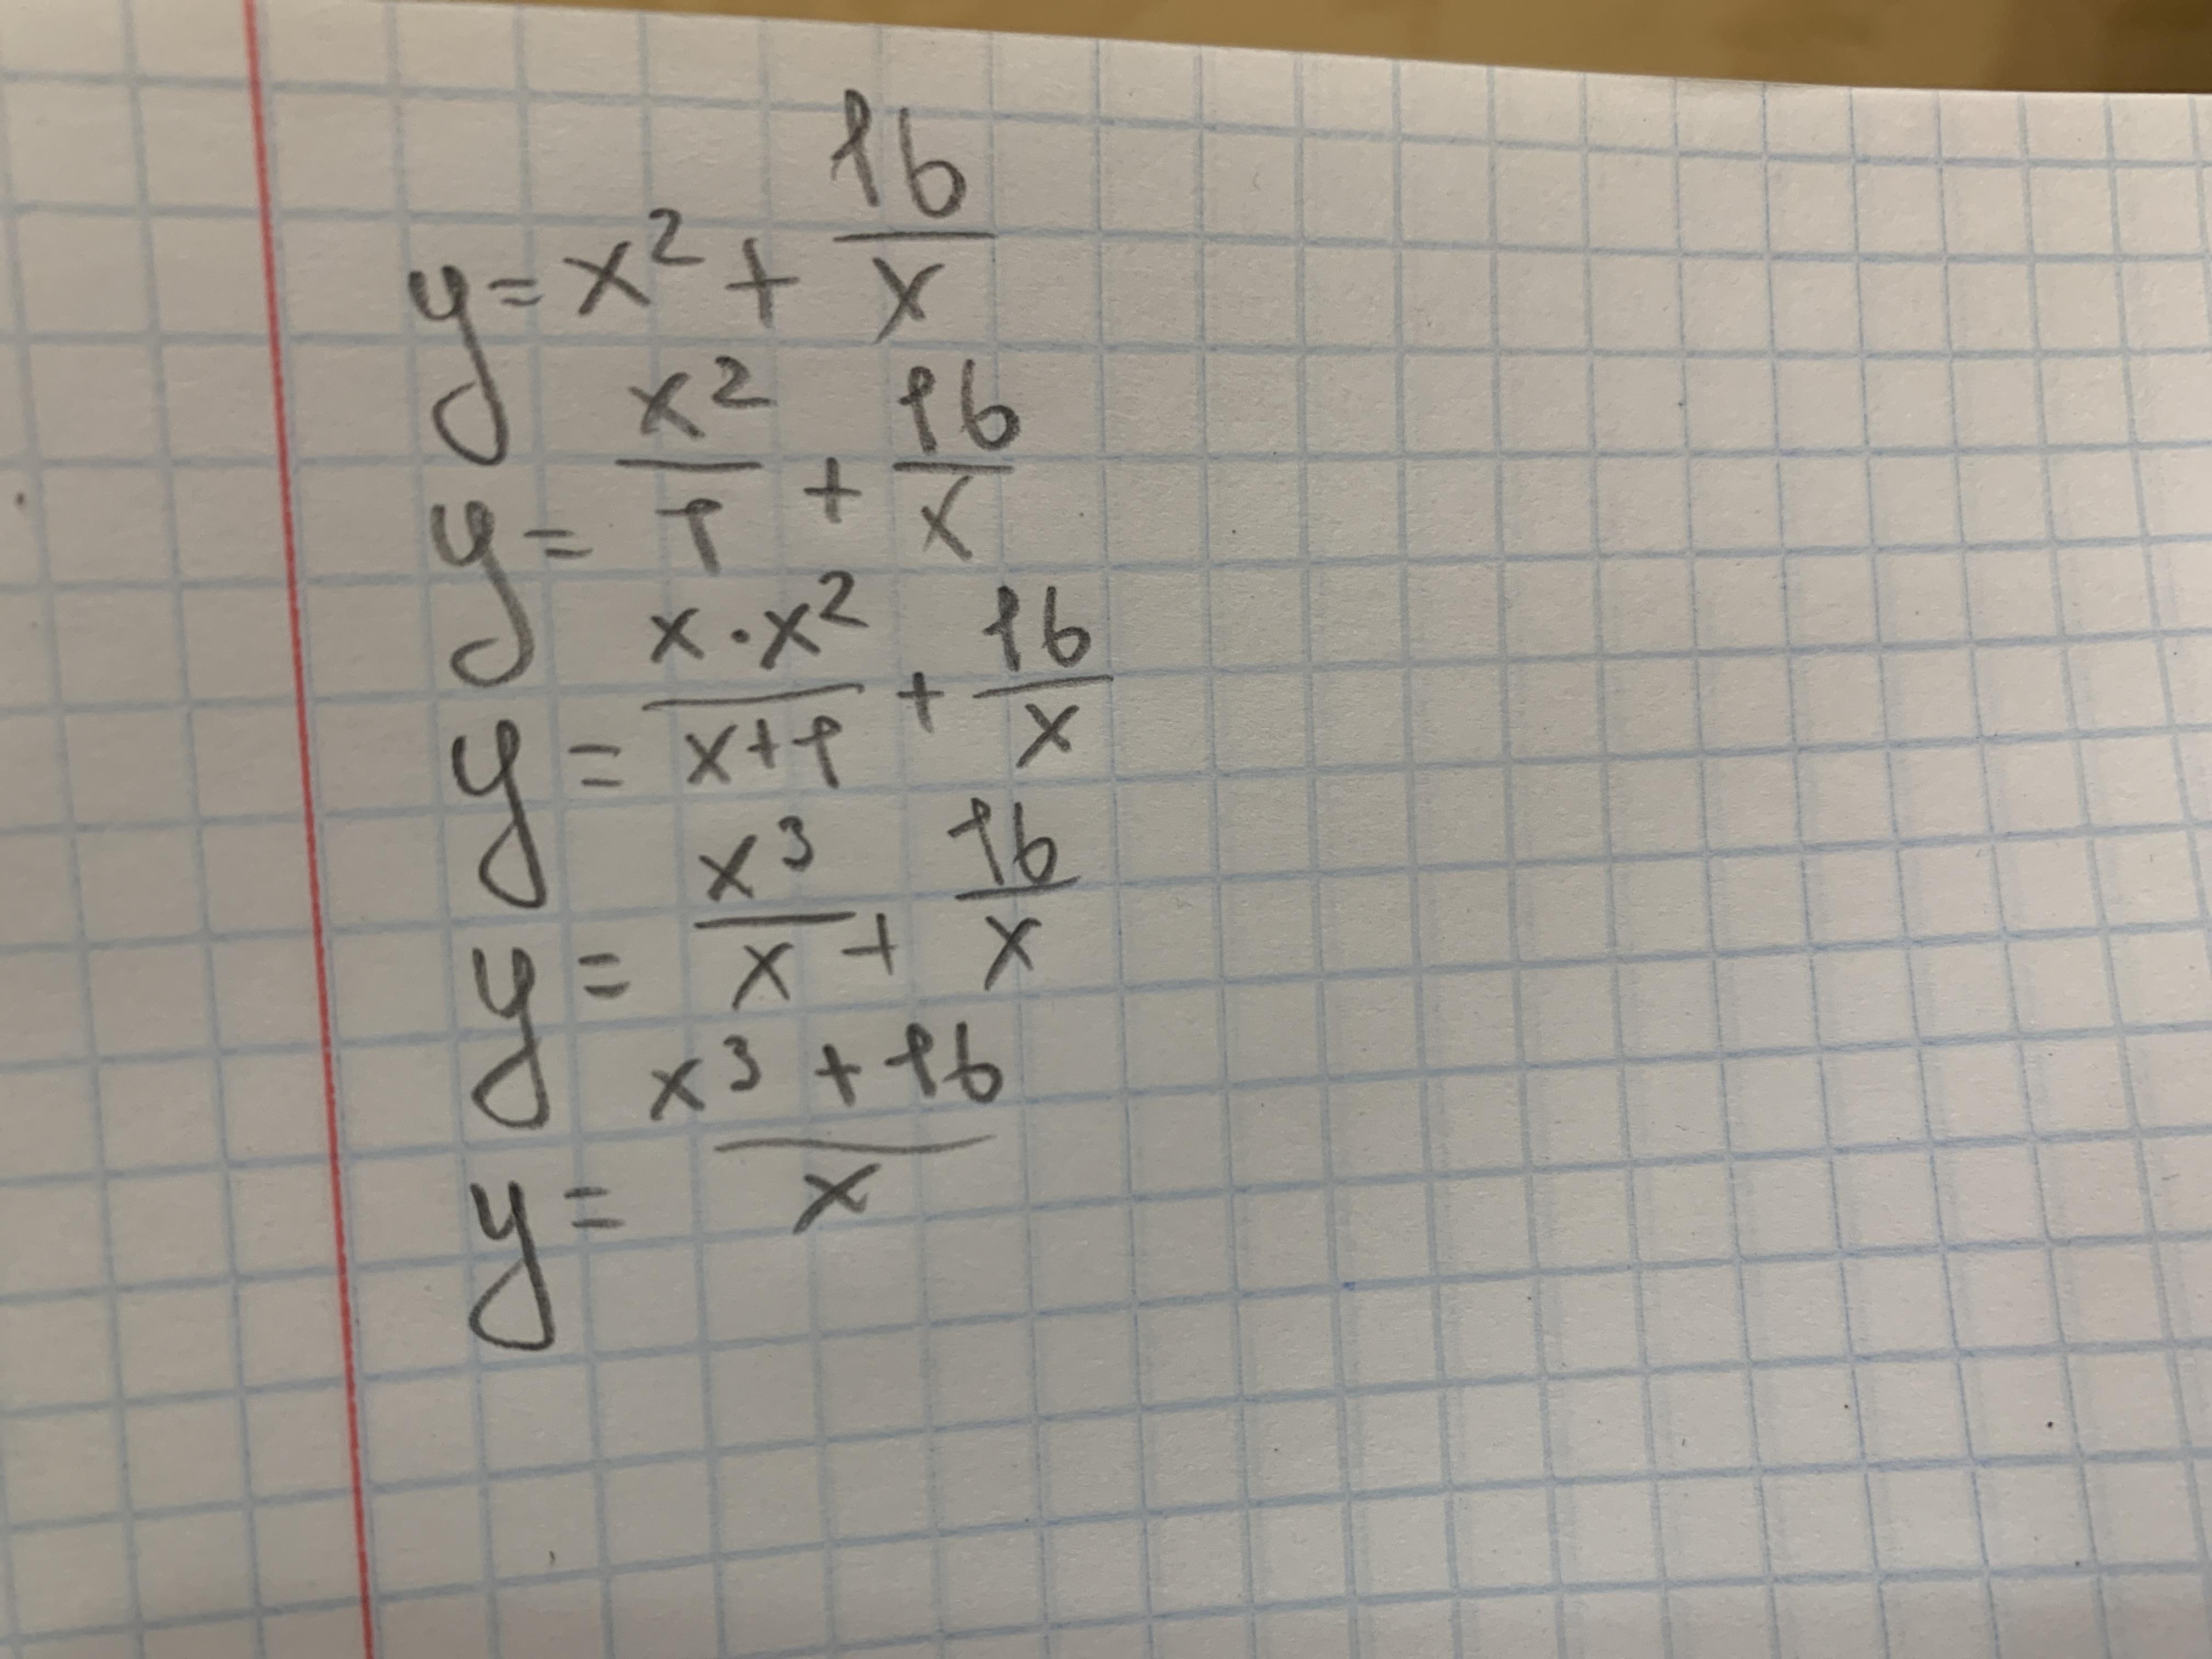 y = x² + 16/x
y = x²/1 + 16/x
y = x·x²/x+1 + 16/x
y = x³/x + 16/x
y = x³ + 16/x